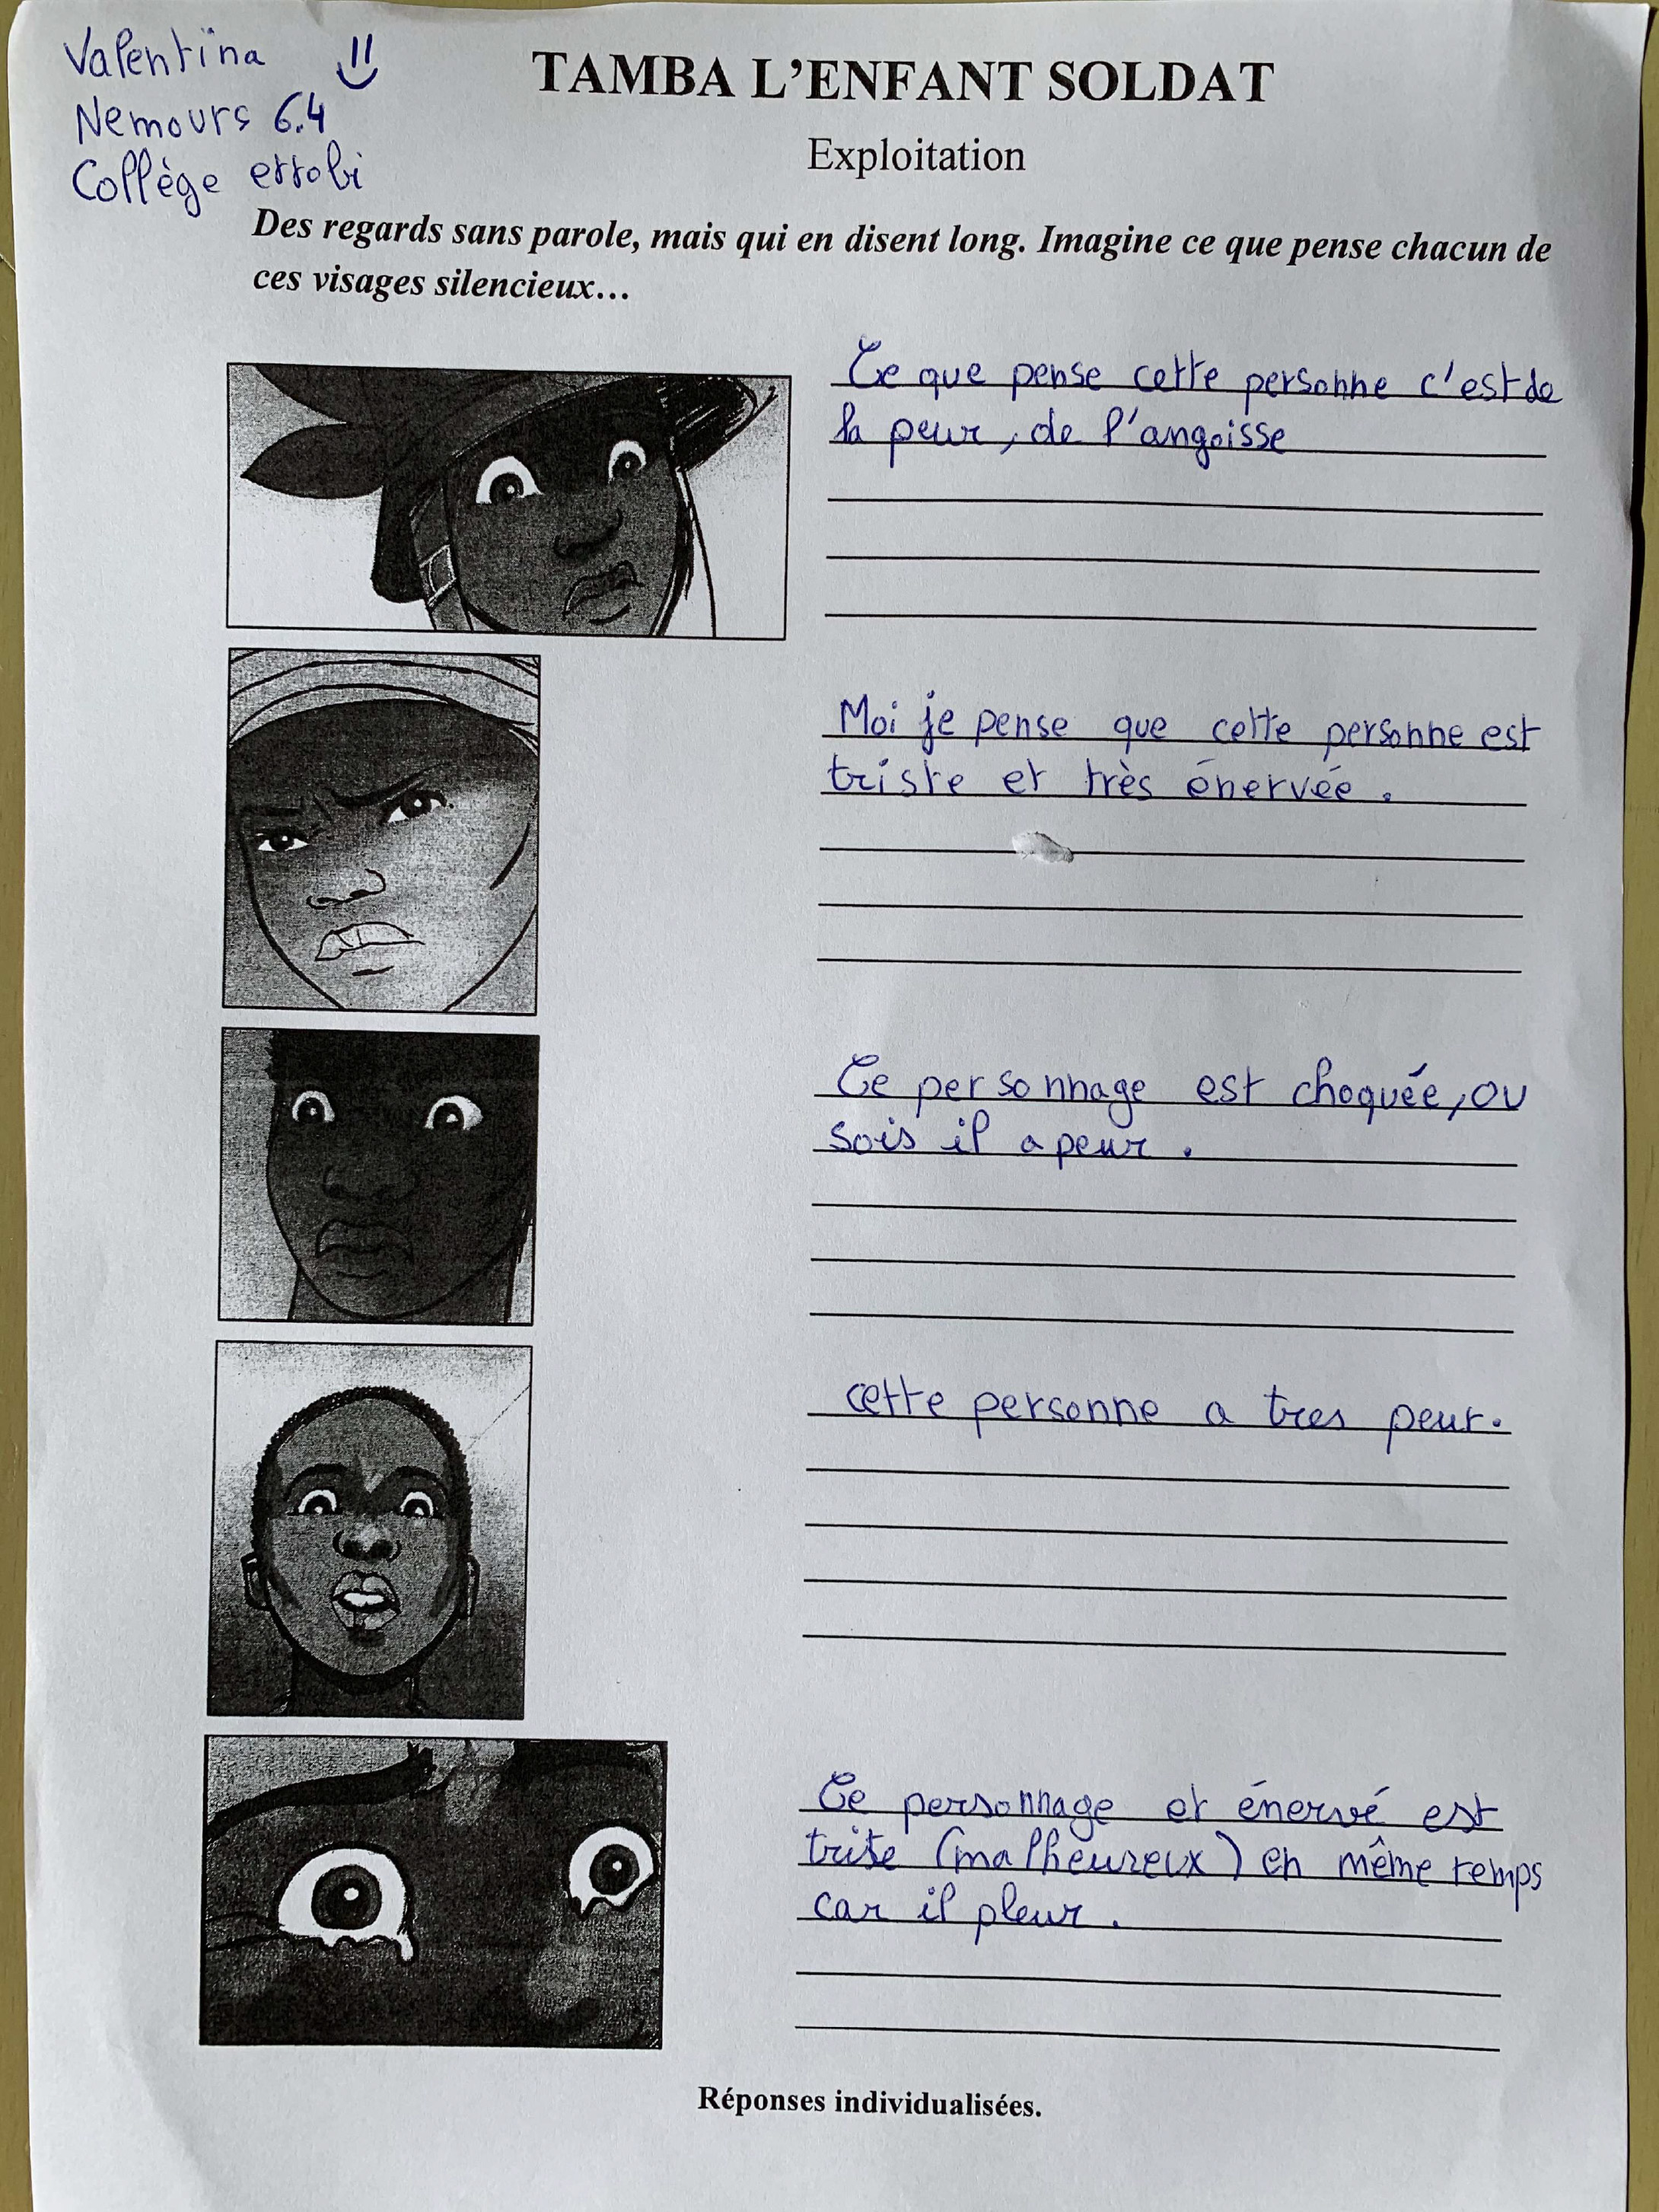 Valentina
Nemours 6.4
Collège errobi
TAMBA L'ENFANT SOLDAT
Exploitation
Des regards sans parole, mais qui en disent long. Imagine ce que pense chacun de
ces visages silencieux…
Ce que pense cette personne c'est de
la peur, de l'angoisse
Moi je pense que cette personne est
triste et très énervée.
Ce personnage est choquée, ou
sois il a peur.
cette personne a tres peur.
Ce personnage et énervé est
trite (malheureux) en même temps
car il pleur.
Réponses individualisées.